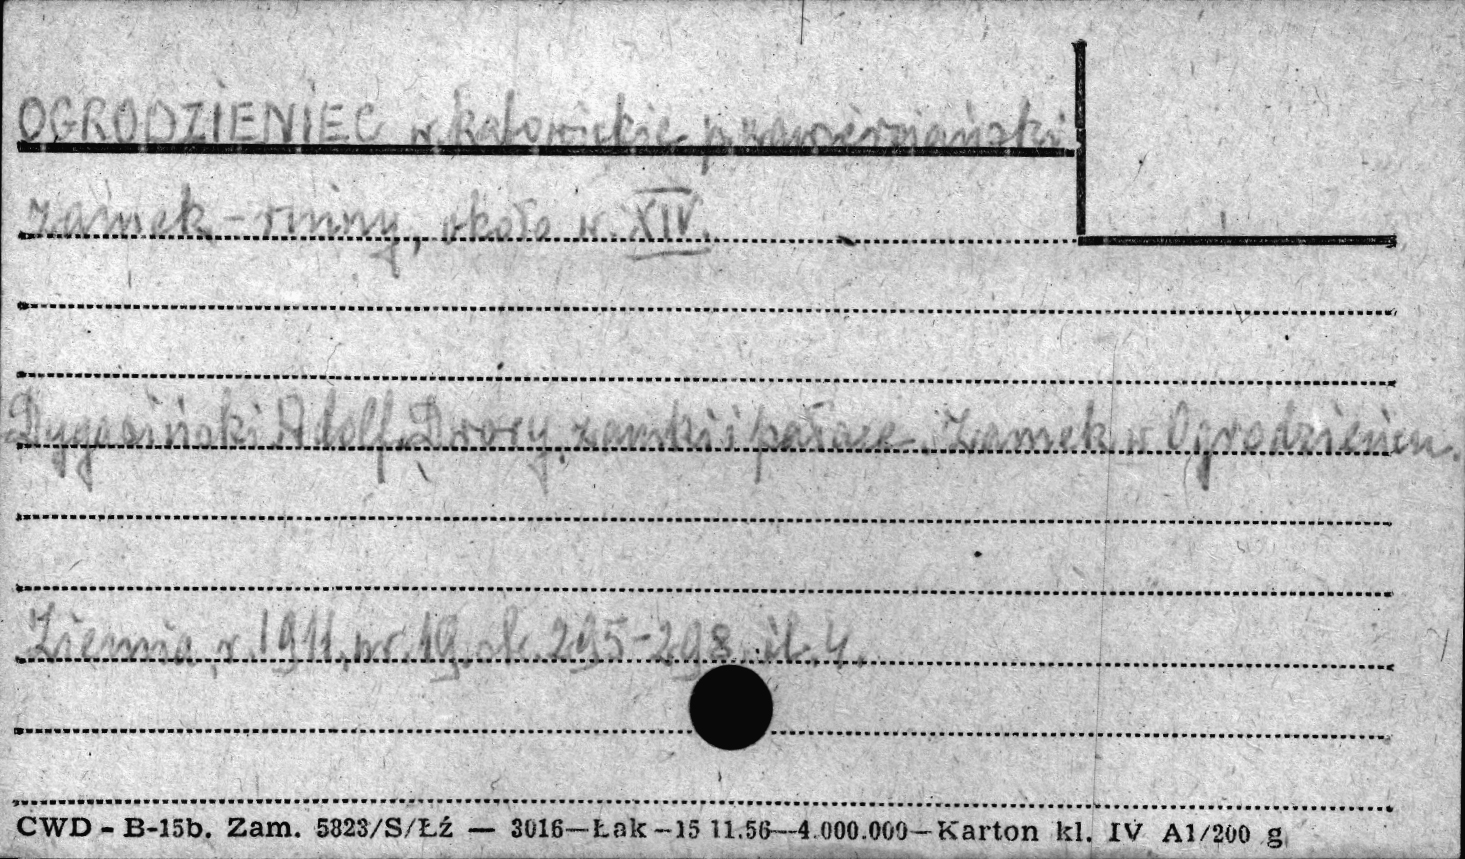 OGRODZIENIEC w katowickie p zawierciański
zamek - ruiny, około w. XIV.
Dygasiński Adolf. Dwory, zamki i pałace. Zamek w Ogrodzieńcu.
Ziemia, r. 1911, nr. 19. st. 295-298, il. 4.
CWD - B-15b. Zam. 5823/S/Łź — 3016—Łak—15 11.56—4.000.000—Karton kl. IV A1/200 g